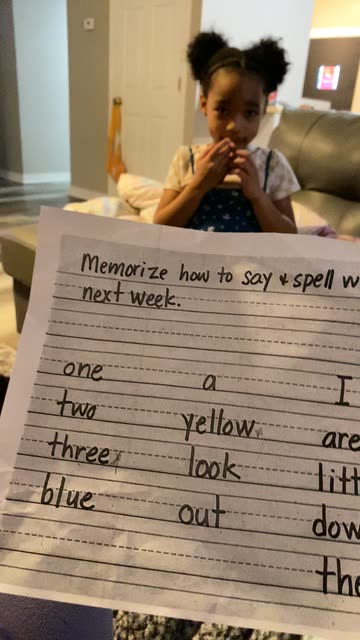 Memorize how to say & spell w
next week.
one a I
two yellow are
three look litt
blue out dow
the